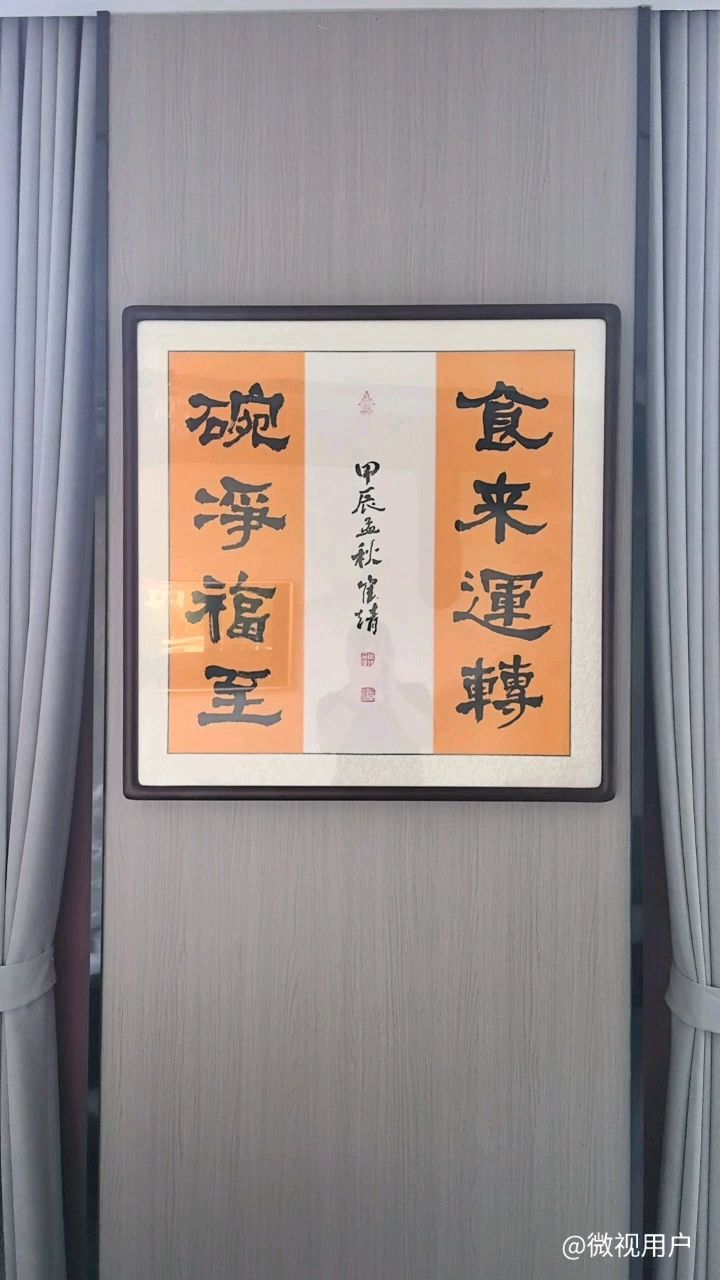 食来運轉
碗淨福至
甲辰孟秋崔靖
@微视用户